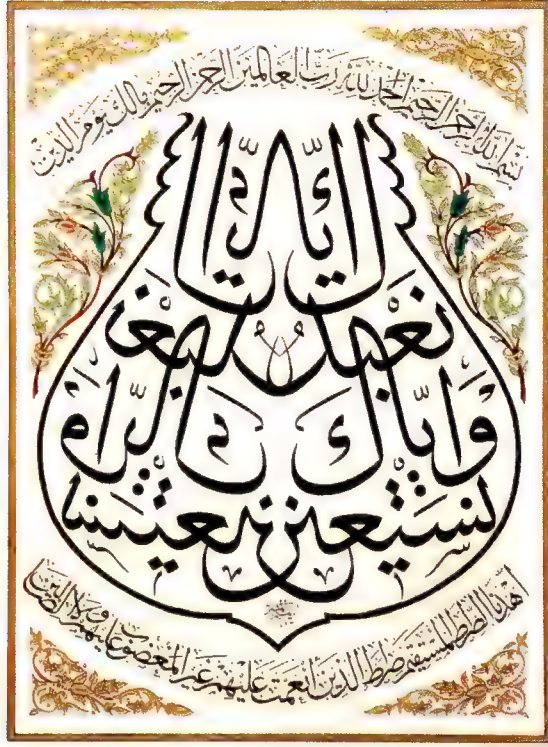 بسم الله الرحمن الرحيم الحمد لله رب العالمين الرحمن الرحيم مالك يوم الدين
اياك
نعبد
واياك
نستعين
اهدنا الصراط المستقيم صراط الذين انعمت عليهم غير المغضوب عليهم ولا الضالين